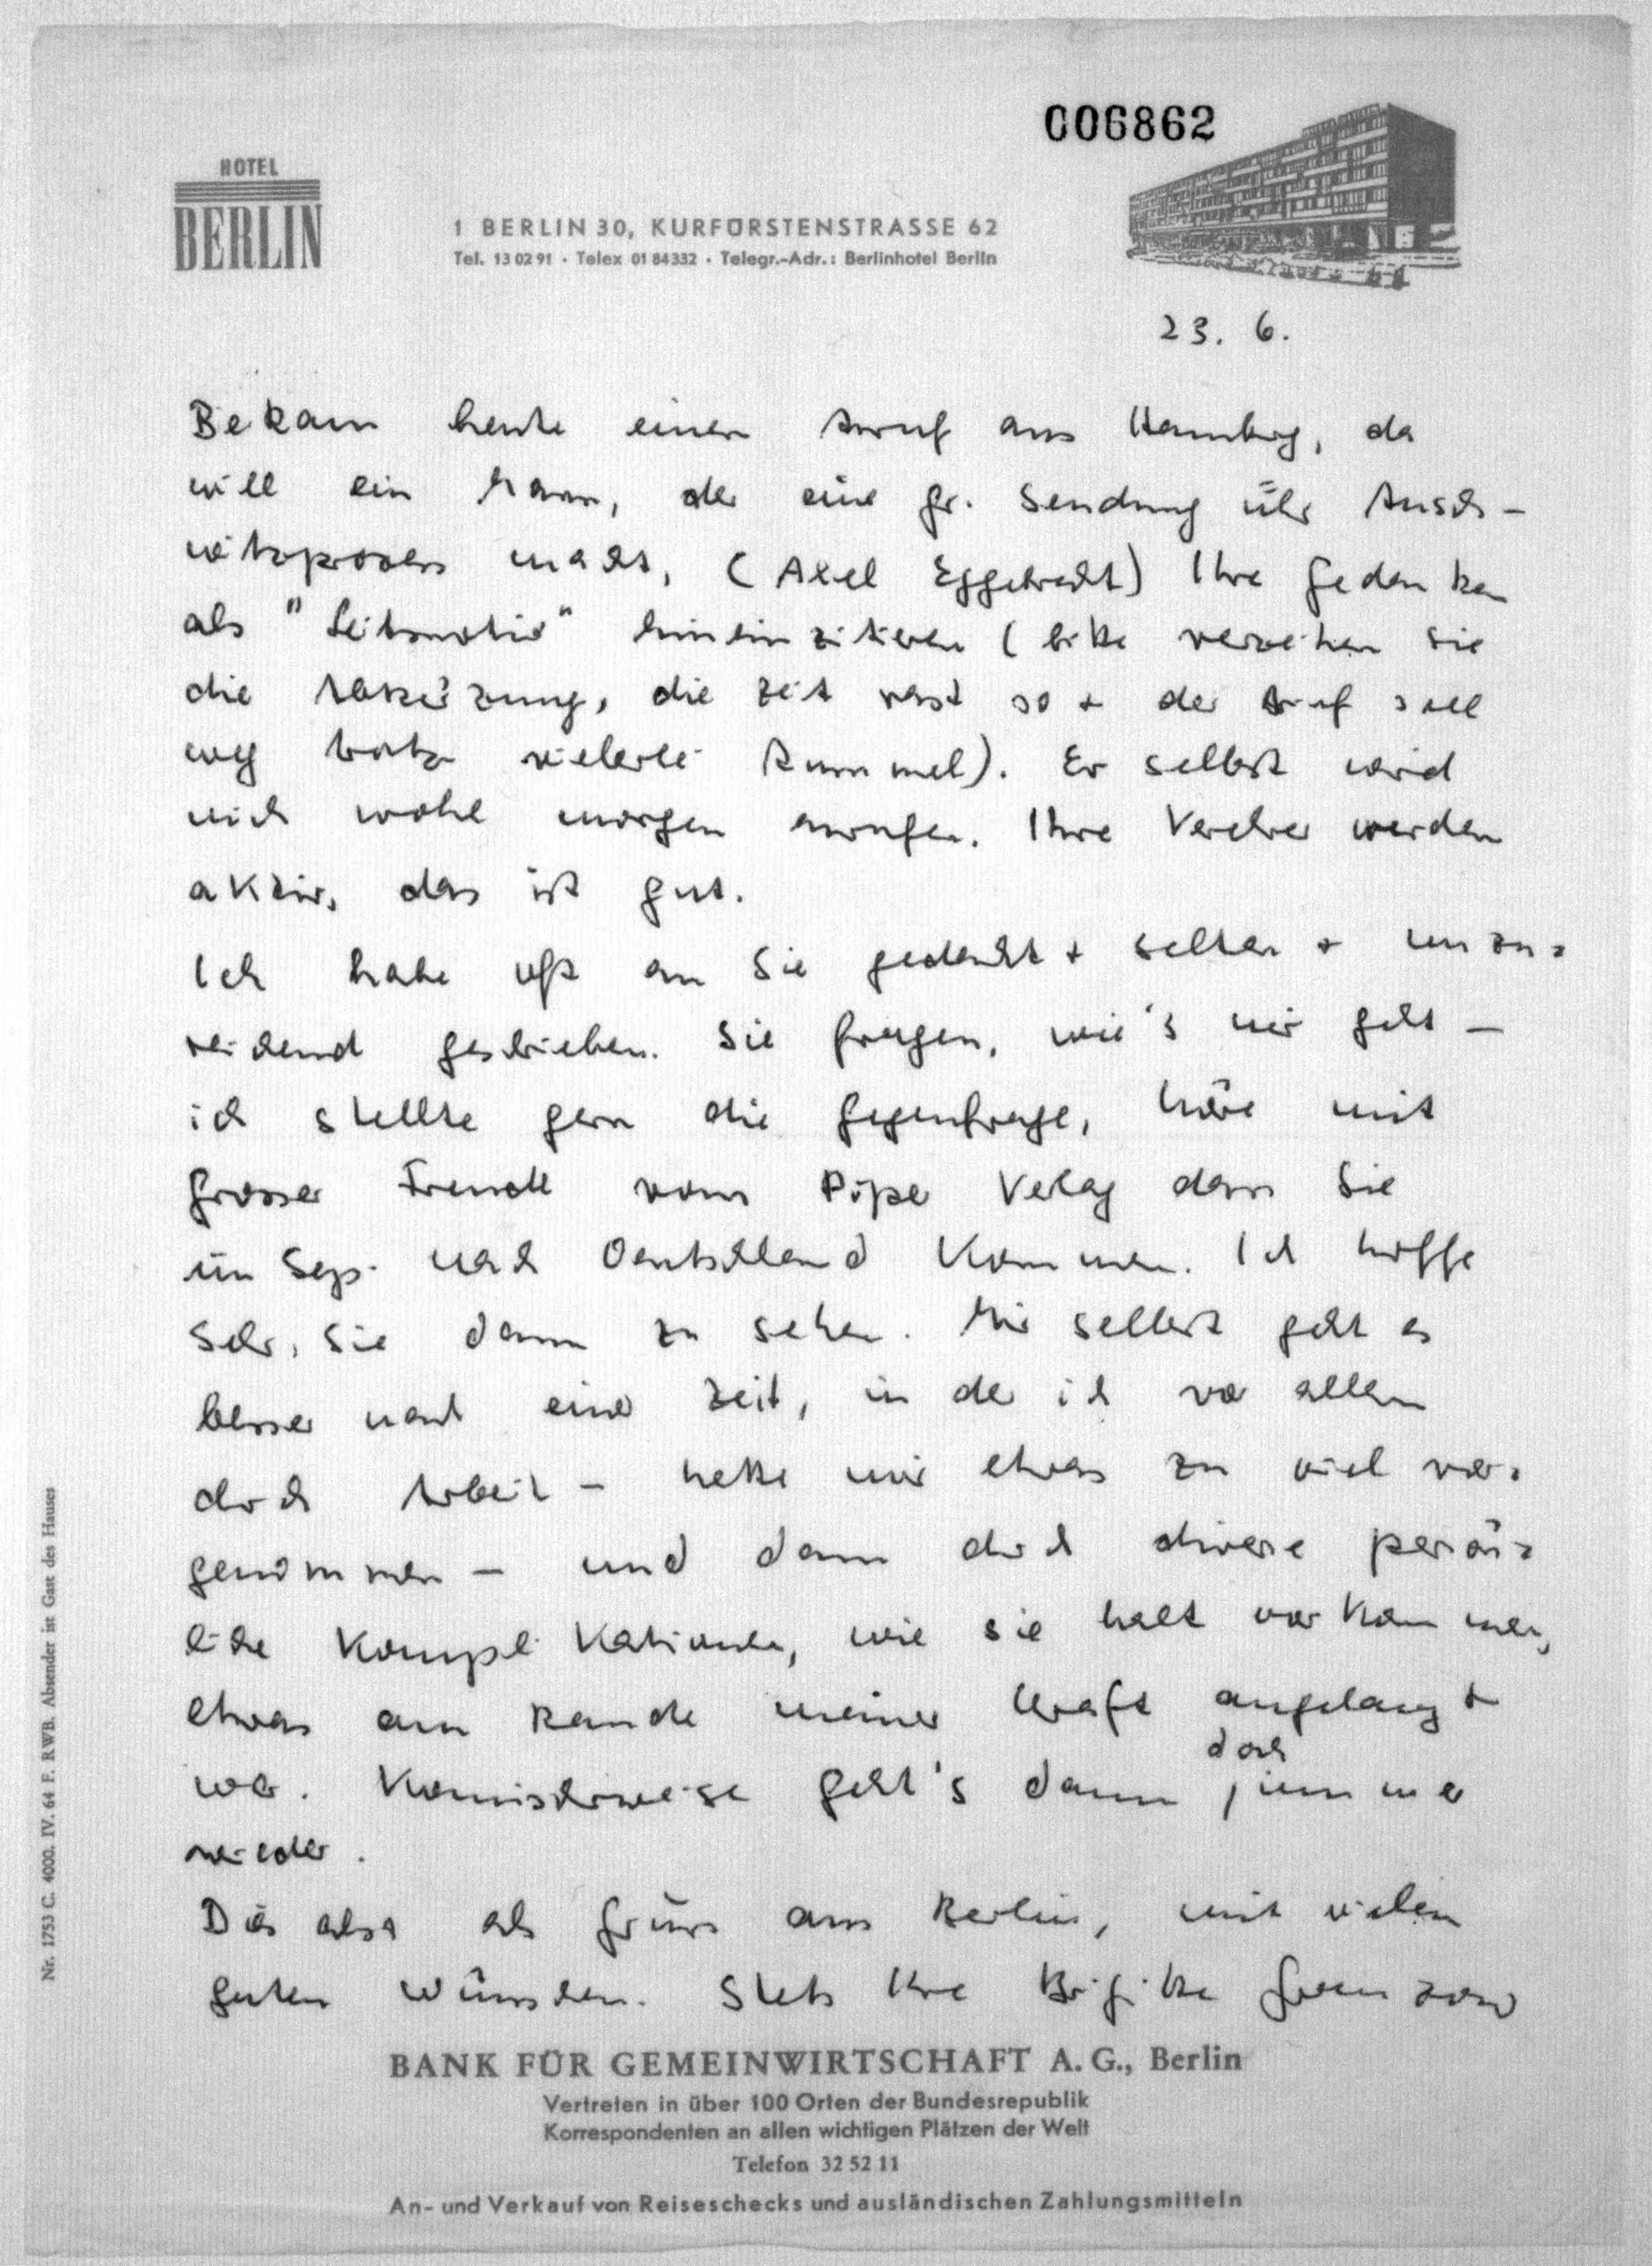 006862
HOTEL
BERLIN
1 BERLIN 30, KURFÜRSTENSTRASSE 62
Tel. 13 02 91 · Telex 01 84 332 · Telegr.-Adr.: Berlinhotel Berlin
23. 6.
Bekam heute einen Anruf aus Hamburg, da
will ein Mann, der eine gr. Sendung über Ausch-
witzprozess macht, (Axel Eggebrecht) Ihre Gedanken
als "Leitmotiv" hineinzitieren (bitte verzeihen Sie
die Abkürzung, die Zeit rast so + der Brief soll
weg trotz vielerlei Rummel). Er selbst wird
mich wohl morgen anrufen. Ihre Verehrer werden
aktiv, das ist gut.
Ich habe oft an Sie gedacht + selten + unzu=
reichend geschrieben. Sie fragen, wie's mir geht –
ich stellte gern die Gegenfrage, höre mit
grosser Freude vom Piper Verlag dass Sie
im Sep. nach Deutschland kommen. Ich hoffe
sehr, Sie dann zu sehen. Mir selbst geht es
besser nach einer Zeit, in der ich vor allem
durch Arbeit – hatte mir etwas zu viel vor=
genommen – und dann durch diverse persön=
liche Komplikationen, wie sie halt vorkommen,
etwas am Rande meiner Kraft angelangt
war. Komischerweise geht's dann doch immer
wieder.
Dies also als Gruss aus Berlin, mit vielen
guten Wünschen. Stets Ihre Brigitte Granzow
BANK FÜR GEMEINWIRTSCHAFT A. G., Berlin
Vertreten in über 100 Orten der Bundesrepublik
Korrespondenten an allen wichtigen Plätzen der Welt
Telefon 32 52 11
An- und Verkauf von Reiseschecks und ausländischen Zahlungsmitteln
Nr. 1753 C. 4000. IV. 64 F. RWB. Absender ist Gast des Hauses